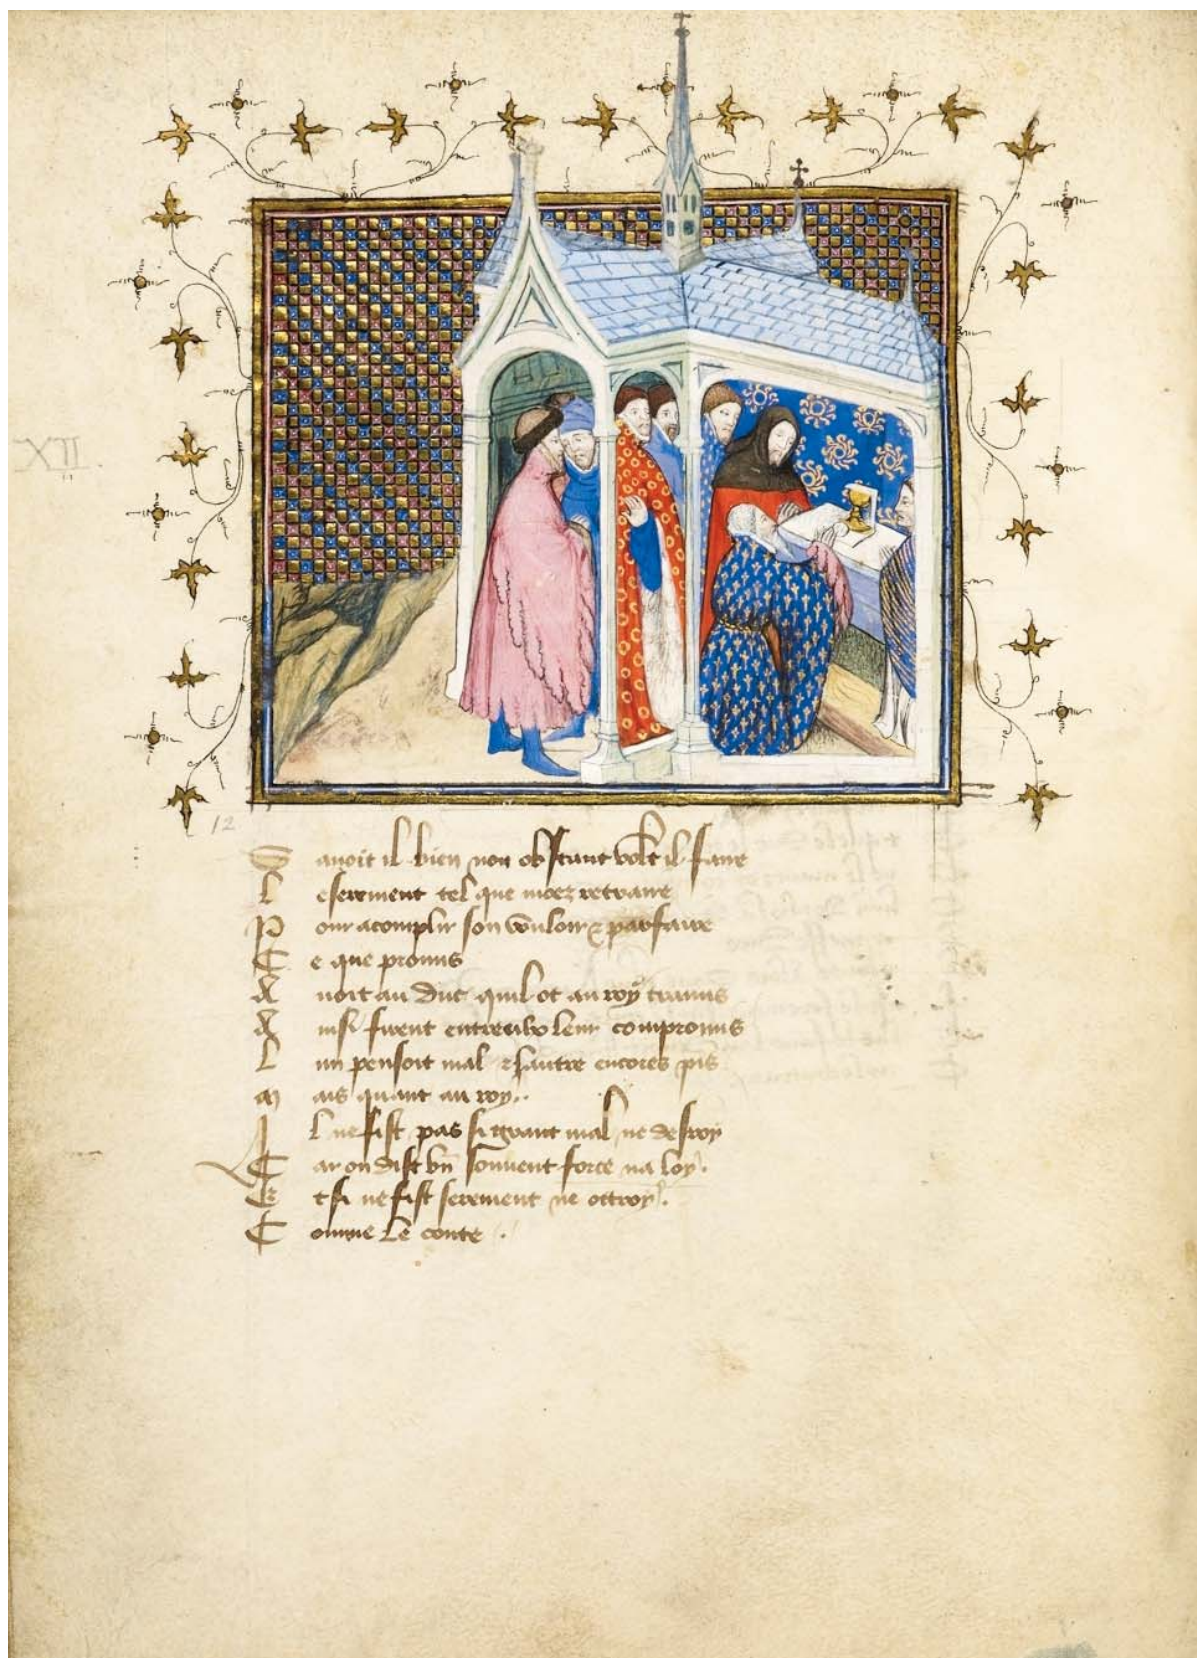 XII.
12
Sauoit il bien non obstant volt il faire
Le serement tel que moez retraire
Pour acomplir son vouloir & parfaire
Ce que promis
Auoit au duc quil ot au roy tramis
Ainsi furent entreulx leur compromis
Lun pensoit mal & lautre encores pis
Mais quant au roy..
Il ne fist pas si grant mal ne desroy
Car on dist bn souuent force na loy.
Et si ne fist serement ne ottroy.
Comme le conte .